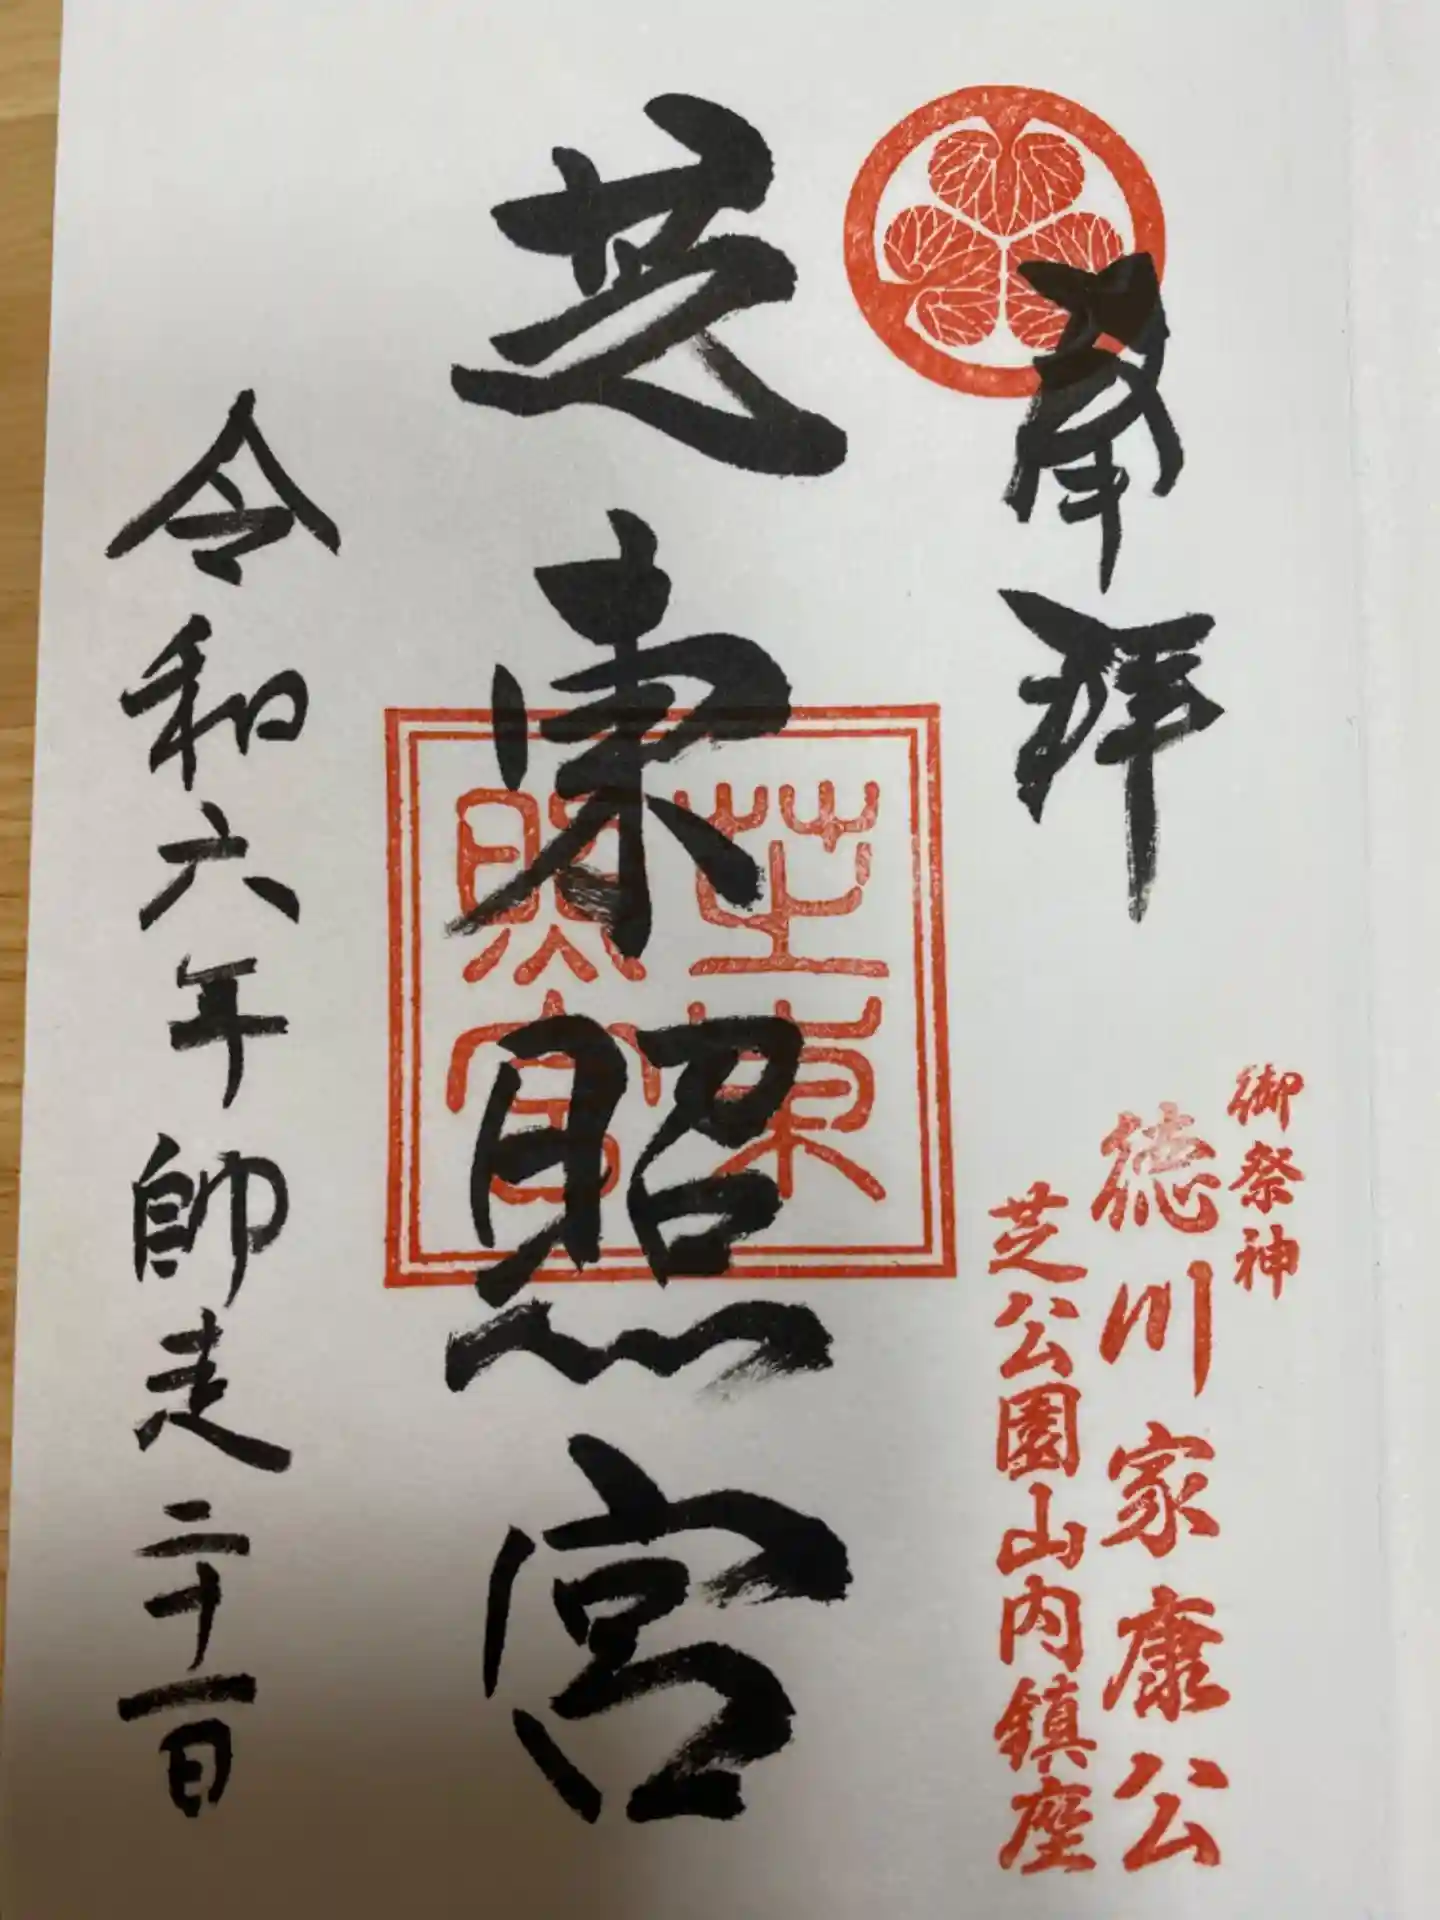 奉拝
御祭神
徳川家康公
芝公園山内鎮座
芝東照宮
芝東照宮
令和六年師走二十一日